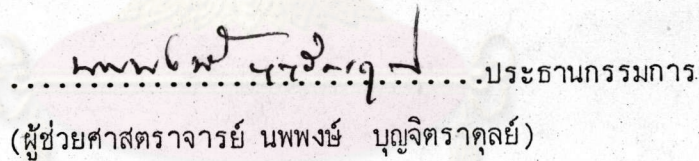 ........................................ประธานกรรมการ
(ผู้ช่วยศาสตราจารย์ นพพงษ์ บุญจิตราดุลย์)